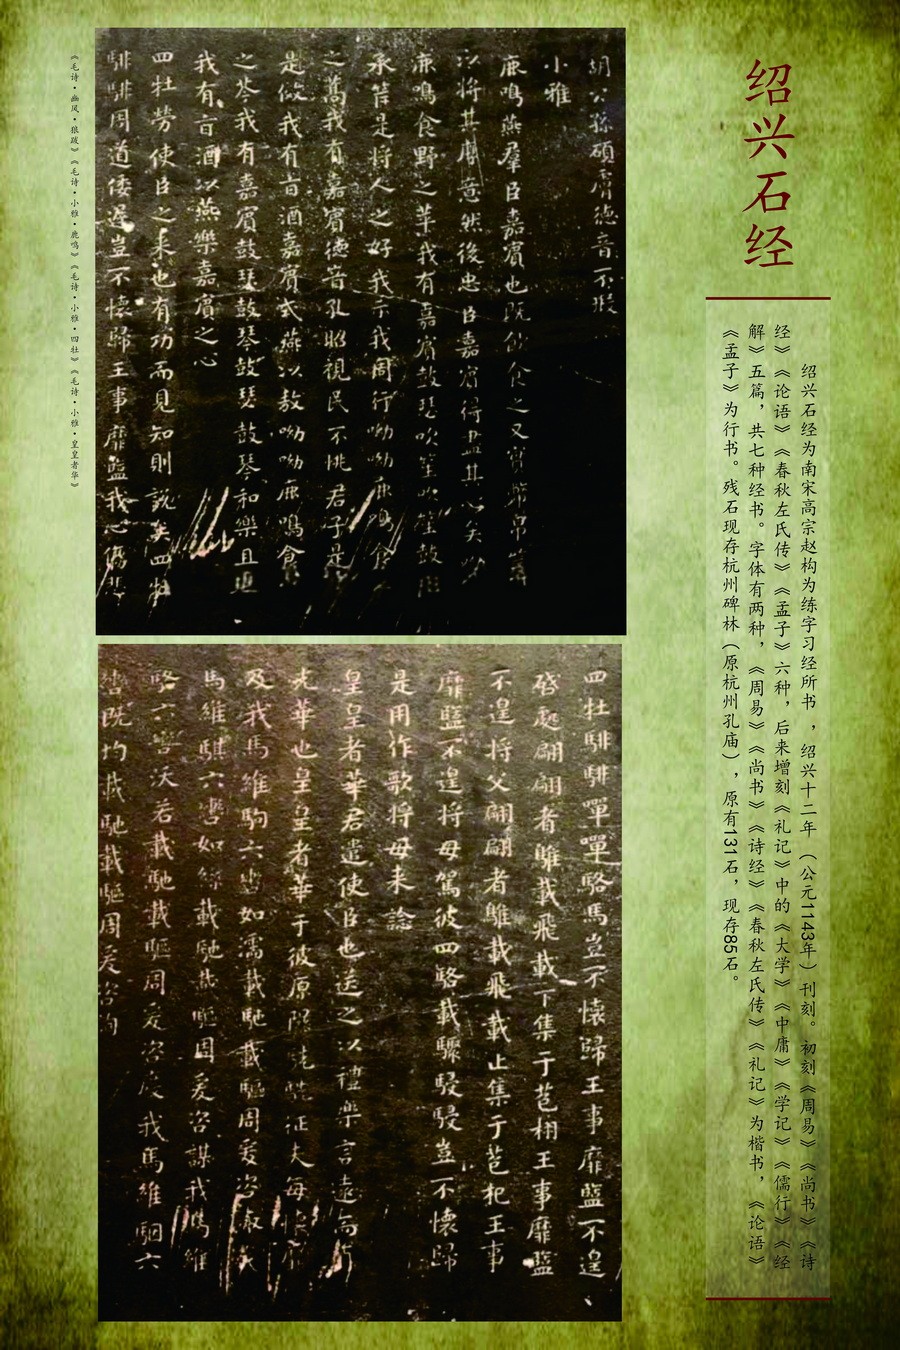 绍兴石经
绍兴石经为南宋高宗赵构为练字习经所书，绍兴十二年（公元1143年）刊刻。初刻《周易》《尚书》《诗
经》《论语》《春秋左氏传》《孟子》六种，后来增刻《礼记》中的《大学》《中庸》《学记》《儒行》《经
解》五篇，共七种经书。字体有两种，《周易》《尚书》《诗经》《春秋左氏传》《礼记》为楷书，《论语》
《孟子》为行书。残石现存杭州碑林（原杭州孔庙），原有131石，现存85石。
胡公孫碩膚德音不瑕
小雅
鹿鳴燕羣臣嘉賓也既飲食之又實幣帛筐
以將其厚意然後忠臣嘉賓得盡其心矣呦
鹿鳴食野之苹我有嘉賓鼓瑟吹笙吹笙鼓
承筐是將人之好我示我周行呦呦鹿鳴食
之蒿我有嘉賓德音孔昭視民不恌君子是
是傚我有旨酒嘉賓式燕以敖呦呦鹿鳴食
之芩我有嘉賓鼓瑟鼓琴鼓瑟鼓琴和樂且
我有旨酒以燕樂嘉賓之心
四牡勞使臣之來也有功而見知則說矣四牡
騑騑周道倭遲豈不懷歸王事靡盬我心傷悲
四牡騑騑嘽嘽駱馬豈不懷歸王事靡盬不遑
啓處翩翩者鵻載飛載下集于苞栩王事靡盬
不遑將父翩翩者鵻載飛載止集于苞杞王事
靡盬不遑將母駕彼四駱載驟駸駸豈不懷歸
是用作歌將母來諗
皇皇者華君遣使臣也送之以禮樂言遠而有
光華也皇皇者華于彼原隰駪駪征夫每懷靡
及我馬維駒六轡如濡載馳載驅周爰咨諏我
馬維騏六轡如絲載馳載驅周爰咨謀我馬維
駱六轡沃若載馳載驅周爰咨度我馬維駰六
轡既均載馳載驅周爰咨詢
《毛诗·豳风·狼跋》《毛诗·小雅·鹿鸣》《毛诗·小雅·四牡》《毛诗·小雅·皇皇者华》